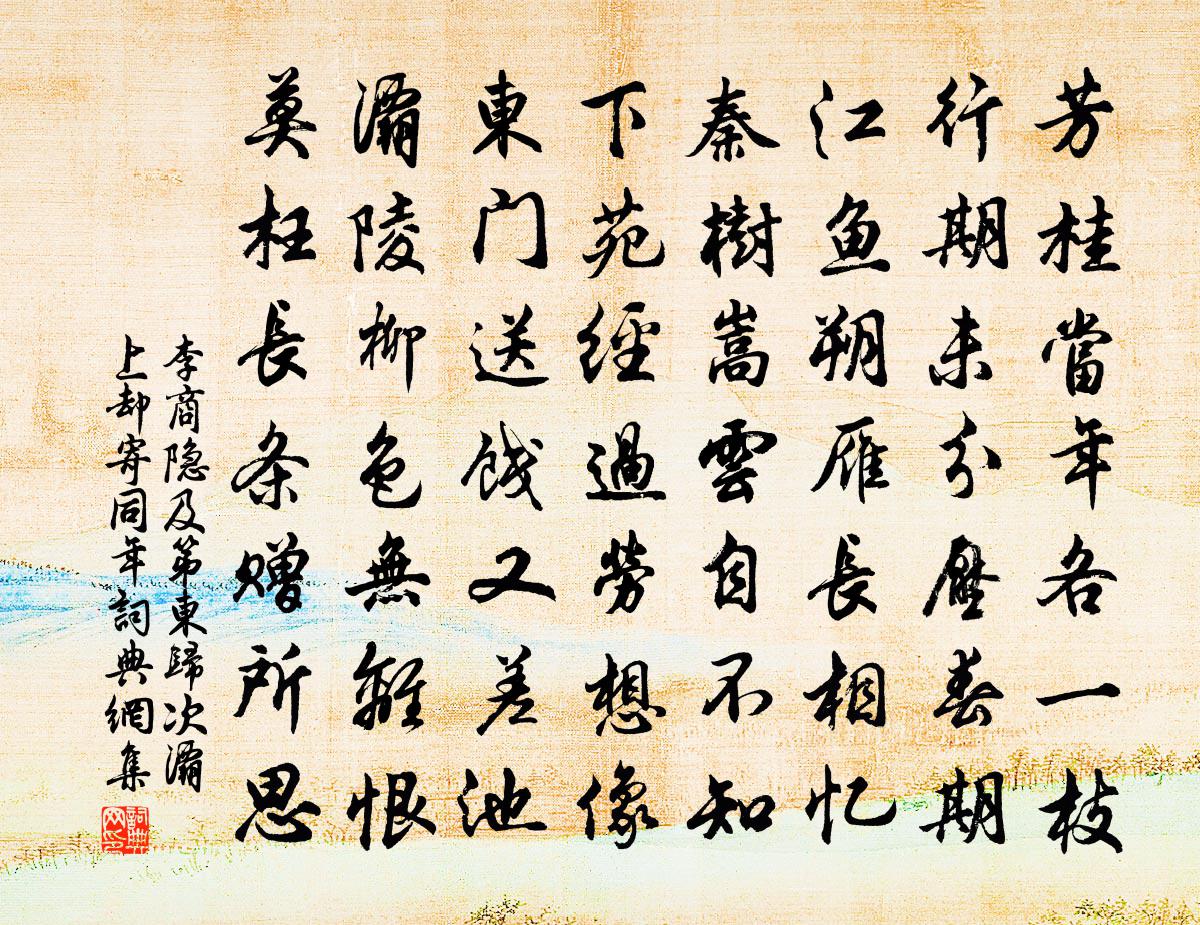 芳桂當年各一枝
行期未分壓春期
江鱼朔雁長相忆
秦樹嵩雲自不知
下苑經過勞想像
東门送餞又差池
灞陵柳色無離恨
莫枉長条赠所思
李商隐及第東歸次灞
上却寄同年詞典網集